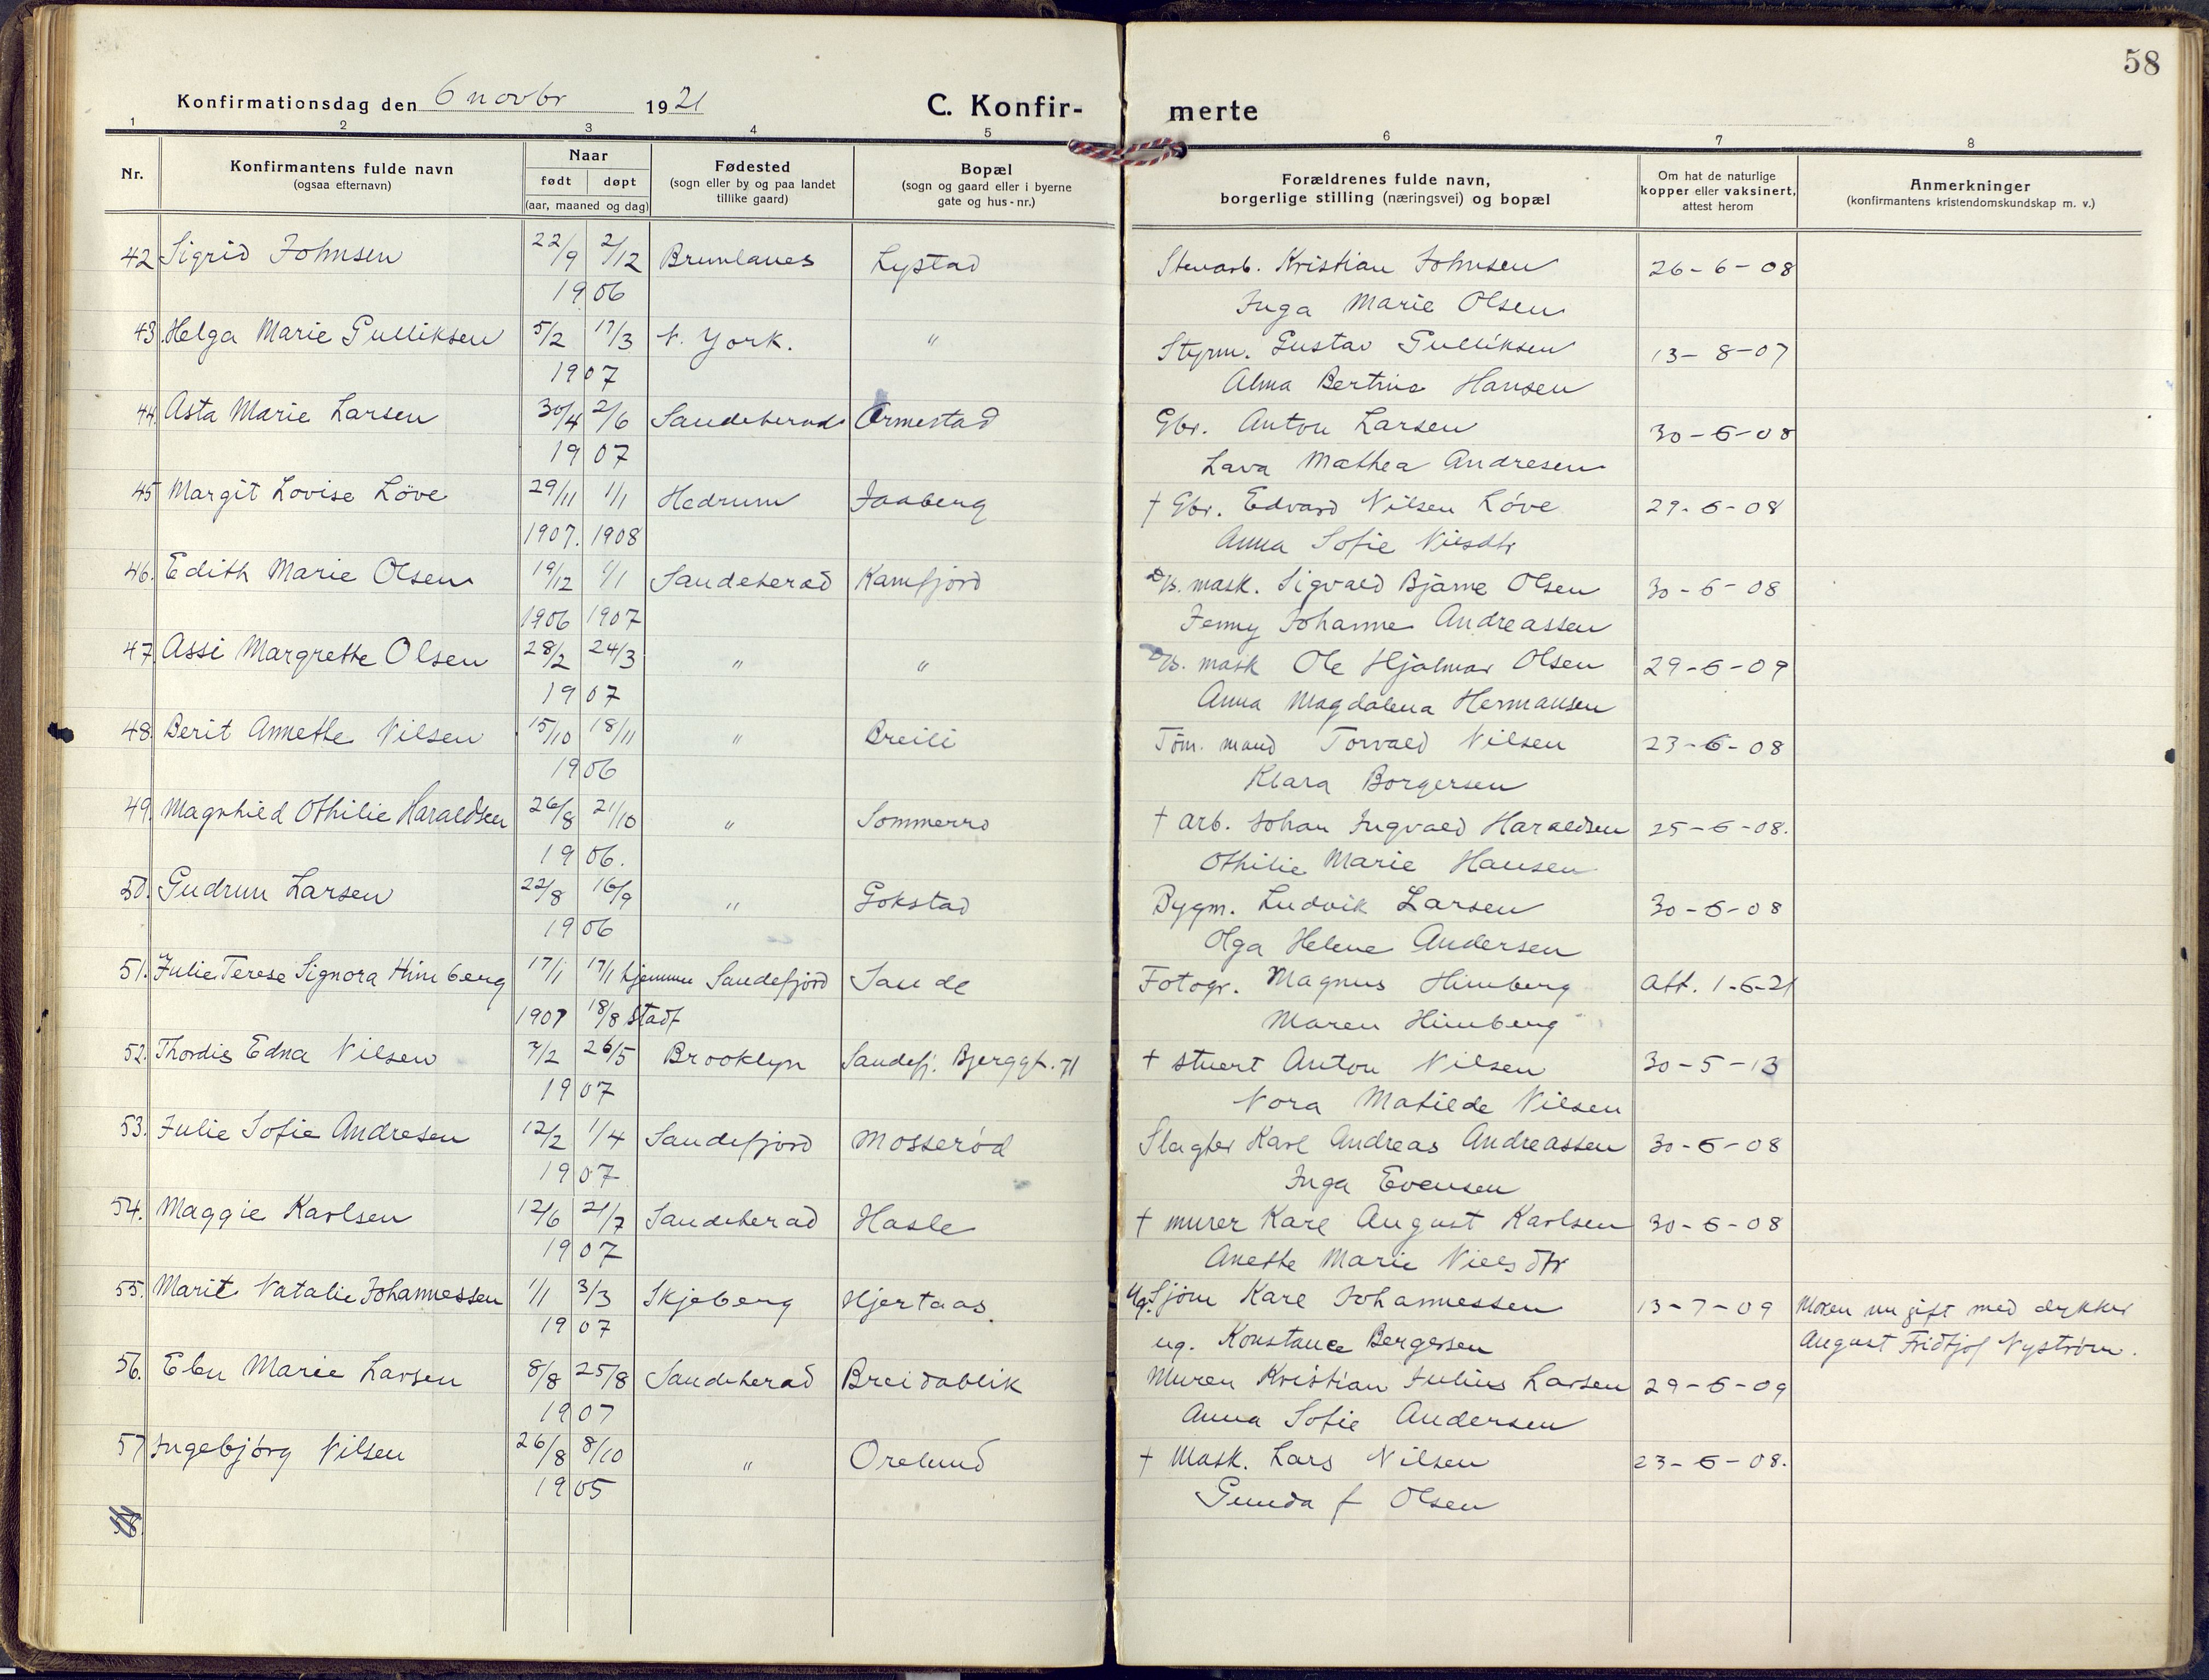 58
Konfirmationsdag den 6 novbr 1921 C. Konfir- merte
1 2 3 4 5 6 7 8
Nr. Konfirmantens fulde navn (ogsaa efternavn) Naar født døpt (aar, maaned og dag) Fødested (sogn eller by og paa landet tillike gaard) Bopæl (sogn og gaard eller i byerne gate og hus-nr.) Forældrenes fulde navn, borgerlige stilling (næringsvei) og bopæl Om hat de naturlige kopper eller vaksinert, attest herom Anmerkninger (konfirmantens kristendomskundskap m. v.)
42 Sigrid Johnsen 22/9 2/12 Brunlanes Lystad Stenarb. Kristian Johnsen 26-6-08
1906 Inga Marie Olsen
43. Helga Marie Gulliksen 5/2 17/3 N. York. " Styrm. Gustav Gulliksen 13-8-07
1907 Alma Bertine Hansen
44. Asta Marie Larsen 30/4 2/6 Sandeherad Ormestad Gbr. Anton Larsen 30-6-08
1907 Lava Mathea Andresen
45 Margit Lovise Löve 29/11 1/1 Hedrum Jaaberg † Gbr. Edvard Nilsen Löve 29-6-08
1907. 1908 Anna Sofie Nilsdtr
46. Edith Marie Olsen 19/12 1/1 Sandeherad Kamfjord mask. Sigvald Bjarne Olsen 30-6-08
1906 1907 Jenny Johanne Andreassen
47. Assi Margrethe Olsen 28/2 24/3 " " mask Ole Hjalmar Olsen 29-6-09
1907 Anna Magdalena Hermansen
48. Berit Annette Nilsen 15/10 18/11 " Breili Töm. mand Torvald Nilsen 23-6-08
1906 Klara Borgersen
49. Magnhild Othilie Haraldsen 26/8 21/10 " Sommerro † arb. Johan Ingvald Haraldsen 25-6-08.
1906. Othilie Marie Hansen
50. Gudrun Larsen 22/8 16/9 " Gokstad Bygm. Ludvik Larsen 30-6-08
1906 Olga Helene Andersen
51. Julie Terese Signora Himberg 17/1 17/1 hjemme Sandefjord Sande Fotogr. Magnus Himberg Att. 1-6-21
1907 18/8 stadf Maren Himberg
52. Thordis Edna Nilsen 7/2 26/5 Brooklyn Sandefj. Bjerggt. 71 † stuert Anton Nilsen 30-5-13
1907 Nora Matilde Nilsen
53. Julie Sofie Andresen 12/2 1/4 Sandefjord Mosserød Slagter Karl Andreas Andreassen 30-6-08
1907 Inga Evensen
54. Maggie Karlsen 12/6 21/7 Sandeherad Hasle † murer Karl August Karlsen 30-6-08
1907 Anette Marie Nielsdtr
55. Marit Natalie Johannessen 1/1 3/3 Skjeberg Hjertaas. Ug. Sjöm Karl Johannessen 13-7-09 Moren nu gift med dykker
1907 ug. Konstance Bergersen August Fridtjof Nyström.
56. Elen Marie Larsen 8/8 25/8 Sandeherad Breidablik Murer Kristian Julius Larsen 29-6-09
1907 Anna Sofie Andersen
57 Ingebjörg Nilsen 26/8 8/10 " Orelund † Mask. Lars Nilsen 23-6-08.
1905 Gunda f Olsen
58.